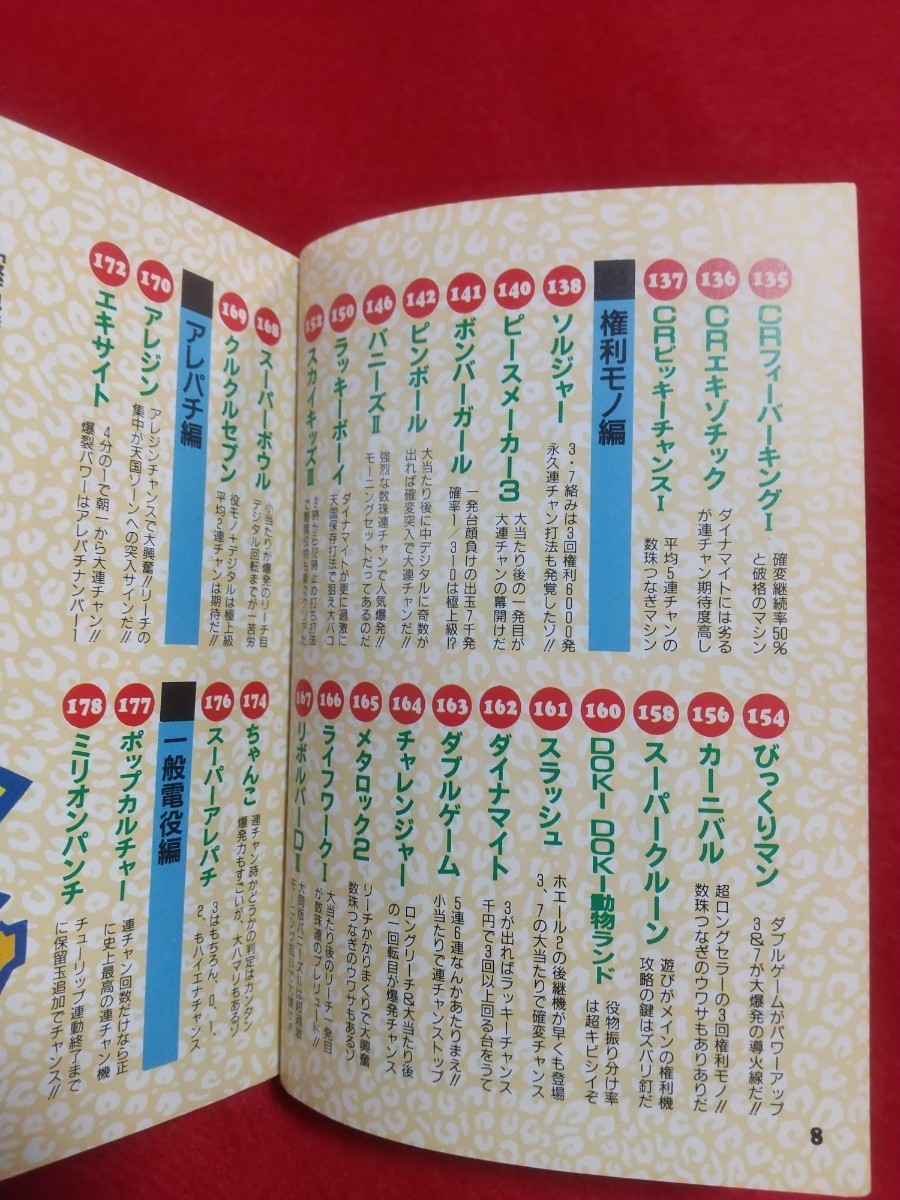 135
CRフィーバーキングI
確変継続率50%
と破格のマシン
136
CRエキゾチック
ダイナマイトには劣る
が連チャン期待度高し
137
CRビッキーチャンスI
平均5連チャンの
数珠つなぎマシン
権利モノ編
138
ソルジャー
3・7絡みは3回権利6000発
永久連チャン打法も発覚したゾ!!
140
ピースメーカー3
大当たり後の一発目が
大連チャンの幕開けだ
141
ボンバーガール
一発台顔負けの出玉7千発
確率1/310は極上級!?
142
ピンボール
大当たり後に中デジタルに奇数が
出れば確変突入で大連チャンだ!!
146
バニーズII
強烈な数珠連チャンで人気爆発!!
モーニングセットだってあるのだ
150
ラッキーボーイ
ダイナマイトが更に過激に
天国保存打法で狙え大バコ
152
スカイキッズIII
154
びっくりマン
ダブルゲームがパワーアップ
3&7が大爆発の導火線だ!!
156
カーニバル
超ロングセラーの3回権利モノ!!
数珠つなぎのウワサもありありだ
158
スーパークルーン
遊びがメインの権利機
攻略の鍵はズバリ釘だ
160
DOKI DOKI動物ランド
役物振り分け率
は超キビシイぞ
161
スラッシュ
ホエール2の後継機が早くも登場
3、7の大当たりで確変チャンス
162
ダイナマイト
3が出ればラッキーチャンス
千円で3回以上回る台をうて
163
ダブルゲーム
5連6連なんかあたりまえ!!
小当たりで連チャンストップ
164
チャレンジャー
ロングリーチ&大当たり後
の一回転目が爆発チャンス
165
メタロック2
リーチかかりまくりで大興奮
数珠つなぎのウワサもあるゾ
166
ライフワークI
大当たり後のリーチ一発目
が数珠連のプレリュード!!
167
リボルバーDI
8
168
スーパーボウル
小当たりが爆発のリーチ目
デジタル回転までが一苦労
169
クルクルセブン
役モノ+デジタルは極上級
平均2連チャンは期待だ!!
アレパチ編
170
アレジン
アレジンチャンスで大興奮!!リーチの
集中が天国ゾーンへの突入サインだ!!
172
エキサイト
4分の1で朝一から大連チャン!!
爆裂パワーはアレパチナンバー1
174
ちゃんこ
連チャン時かどうかの判定はカンタン
爆発力もすごいが、大ハマリもあるゾ
176
スーパーアレパチ
3はもちろん、0、1、
2、もハイエナチャンス
一般電役編
177
ポップカルチャー
連チャン回数だけなら正
に史上最高の連チャン機
178
ミリオンパンチ
チューリップ連動終了まで
に保留玉追加でチャンス!!